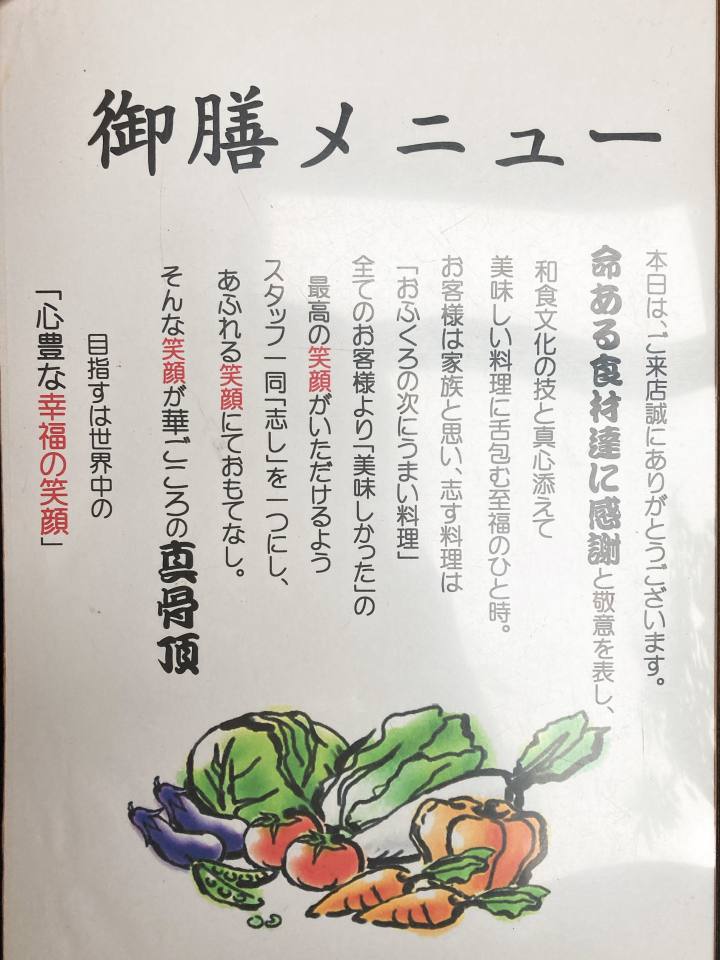 御膳メニュー
本日は、ご来店誠にありがとうございます。
命ある食材達に感謝と敬意を表し、
和食文化の技と真心添えて
美味しい料理に舌包む至福のひと時。
お客様は家族と思い、志す料理は
「おふくろの次にうまい料理」
全てのお客様より「美味しかった」の
最高の笑顔がいただけるよう
スタッフ一同「志し」を一つにし、
あふれる笑顔にておもてなし。
そんな笑顔が華ごころの真骨頂
目指すは世界中の
「心豊な幸福の笑顔」